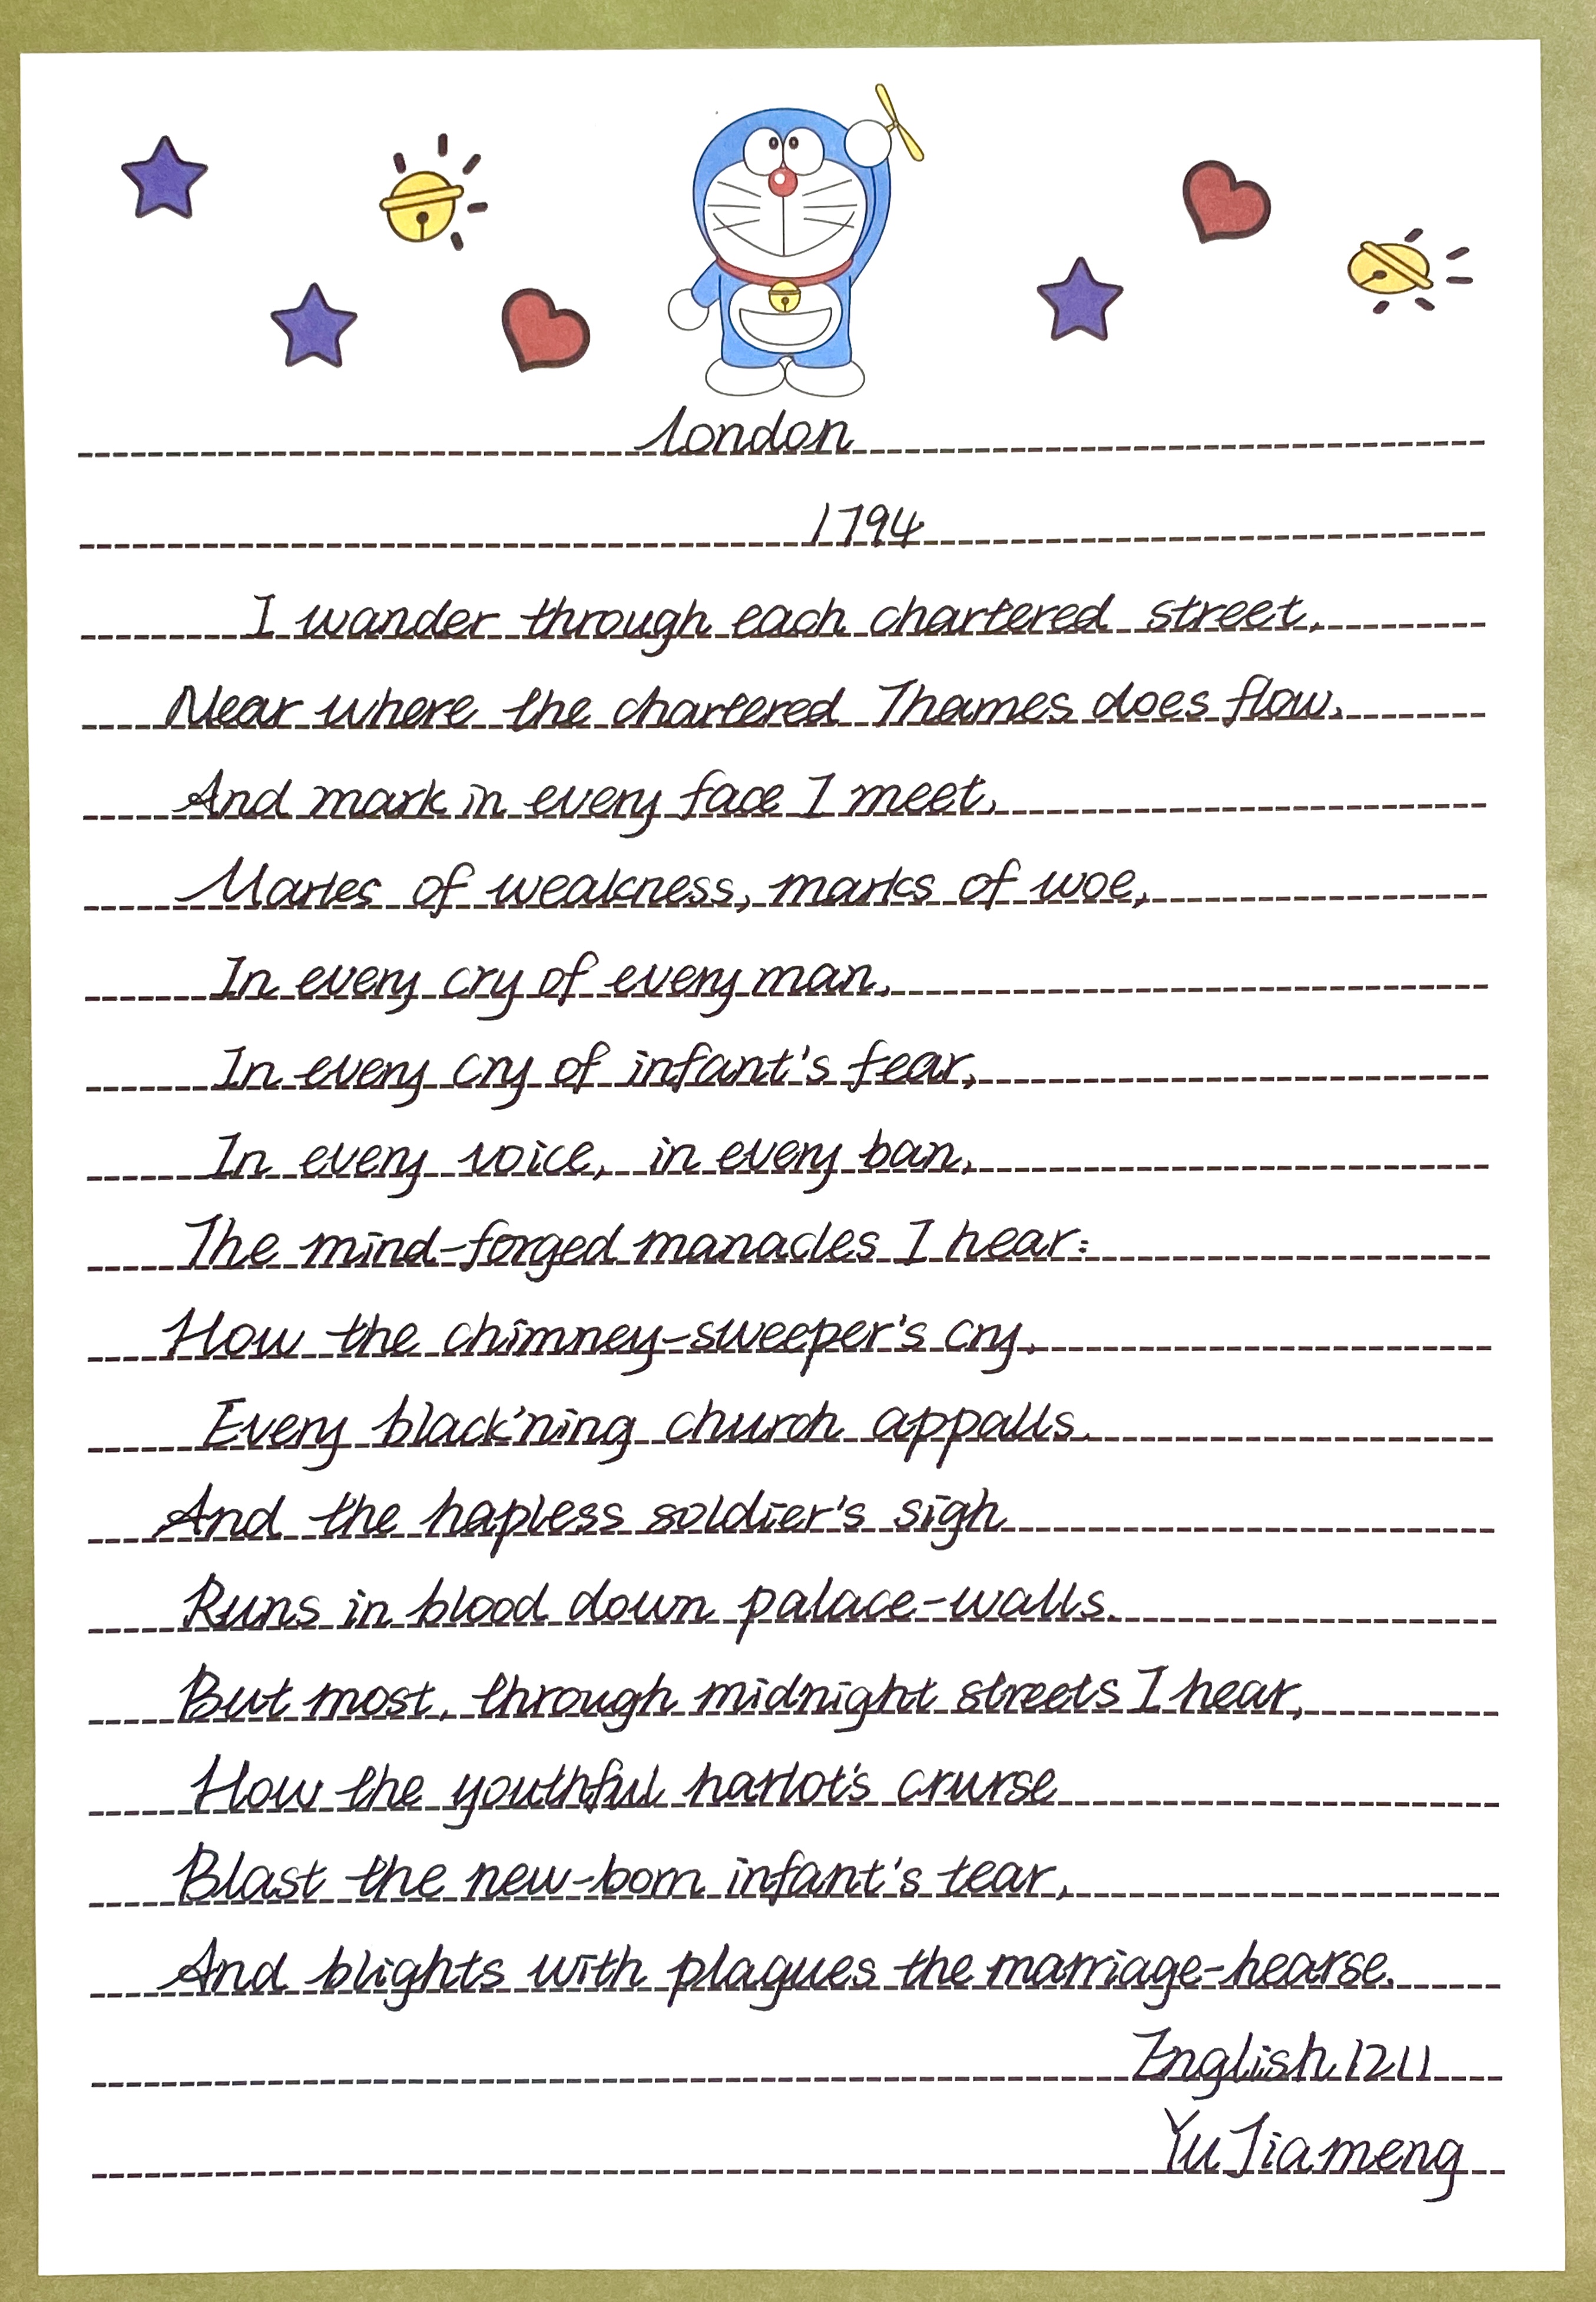 London
1794
I wander through each chartered street,
Near where the chartered Thames does flow,
And mark in every face I meet,
Marks of weakness, marks of woe,
In every cry of every man,
In every cry of infant's fear,
In every voice, in every ban,
The mind-forged manacles I hear:
How the chimney-sweeper's cry,
Every black'ning church appalls.
And the hapless soldier's sigh
Runs in blood down palace-walls.
But most, through midnight streets I hear,
How the youthful harlot's crurse
Blast the new-born infant's tear,
And blights with plagues the marriage-hearse.
English 1211
Yu Jiameng